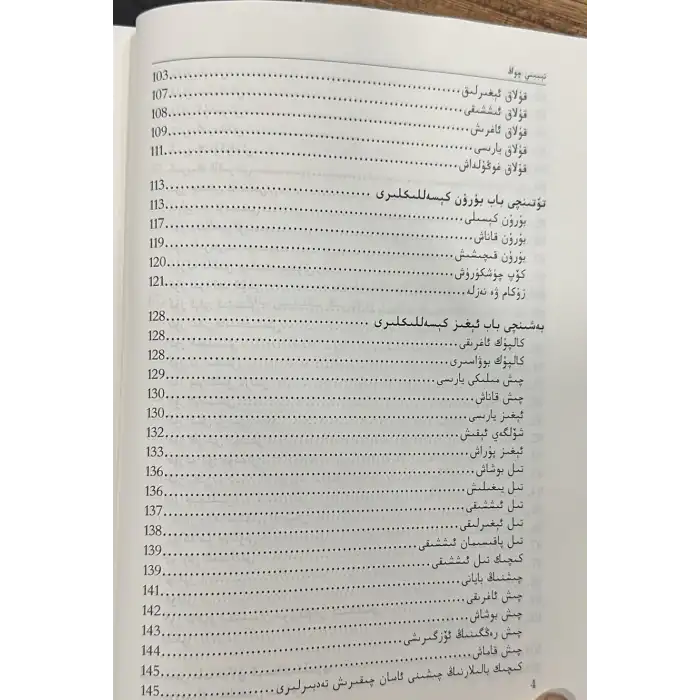 تېببىي چوڭ
قۇلاق ئېغىرلىق 103
قۇلاق ئىششىقى 107
قۇلاق ئاغرىش 108
قۇلاق يارىسى 109
قۇلاق غوڭۇلداش 111
تۆتىنچى باب بۇرۇن كېسەللىكلىرى 113
بۇرۇن كېسىلى 113
بۇرۇن قاناش 117
بۇرۇن قىچىشىش 119
كۆپ چۈشكۈرۈش 120
زۇكام ۋە نەزلە 121
بەشىنچى باب ئېغىز كېسەللىكلىرى 128
كالپۇك ئاغرىقى 128
كالپۇك بوۋاسىرى 128
چىش مىلىكى يارىسى 129
چىش قاناش 130
ئېغىز يارىسى 130
شۆلگەي ئېقىش 132
ئېغىز پۇراش 133
تىل بوشاش 136
تىل يىغىلىش 136
تىل ئىششىقى 137
تىل ئېغىرلىقى 138
تىل پاقىسىمان ئىششىقى 139
كىچىك تىل ئىششىقى 139
چىشنىڭ بايانى 141
چىش ئاغرىقى 142
چىش بوشاش 143
چىش رەڭگىنىڭ ئۆزگىرىشى 144
چىش قاماش 145
كىچىك بالىلارنىڭ چىشىنى ئاسان چىقىرىش تەدبىرلىرى 145
4